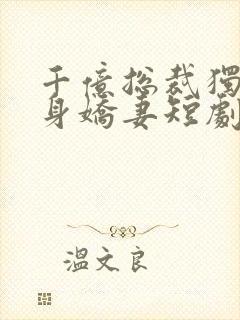 千億總裁獨
身嬌妻短劇
溫文良